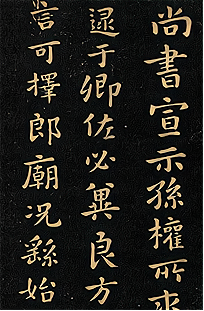 尚書宣示孫權所求
逮于卿佐必冀良方
言可擇郎廟況繇始